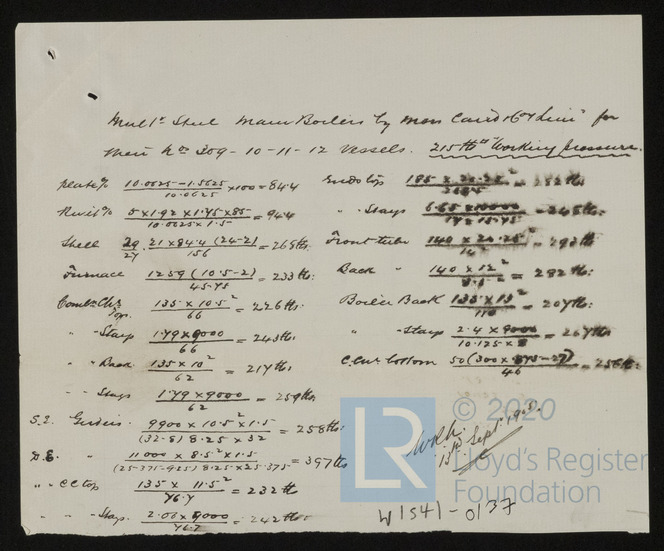 Mult. Steel Main Boilers by Mess Caird & Co Ltd for
their No 309-10-11-12 Vessels. 215 lbs Working pressure.
plate % (10.0625 - 1.5625) / 10.0625 x 100 = 84.4
Rivet % (5 x 1.92 x 1.75 x 85) / (10.0625 x 1.5) = 94.4
Shell 29/27 . 21 x 84.4 (24-2) / 156 = 265 lbs
Furnace 1259 (10.5-2) / 45.75 = 233 lbs:
Combn Chr Tops. 135 x 10.5² / 66 = 226 lbs:
" - Stays 1.79 x 9000 / 66 = 243 lbs:
" - Back 135 x 10² / 62 = 217 lbs
" - Stays 1.79 x 9000 / 62 = 259 lbs.
S.E. Girders. 9900 x 10.5² x 1.5 / (32-8) 8.25 x 32 = 258 lbs:
D.E. " 11000 x 8.5² x 1.5 / (25.375-9.25) 8.25 x 25.375 = 397 lbs
" - CC top 135 x 11.5² / 76.7 = 232 lb
" - Stays. 2.06 x 9000 / 76.7 = 242 lbs
Ends top = 232 lbs:
" - Stays = 245 lbs:
Front tube = 293 lbs
Back " 140 x 12² = 282 lbs:
Boiler Back 135 x 13² / 110 = 207 lbs:
" - Stays 2.4 x 9000 / 10.125 x 8 = 267 lbs:
C. Chr bottom 50 (300 x .875 - 27) / 46 = 256 lbs:
13th Sept. 1905.
W1541-0137
© 2020
LR
Lloyd's Register
Foundation